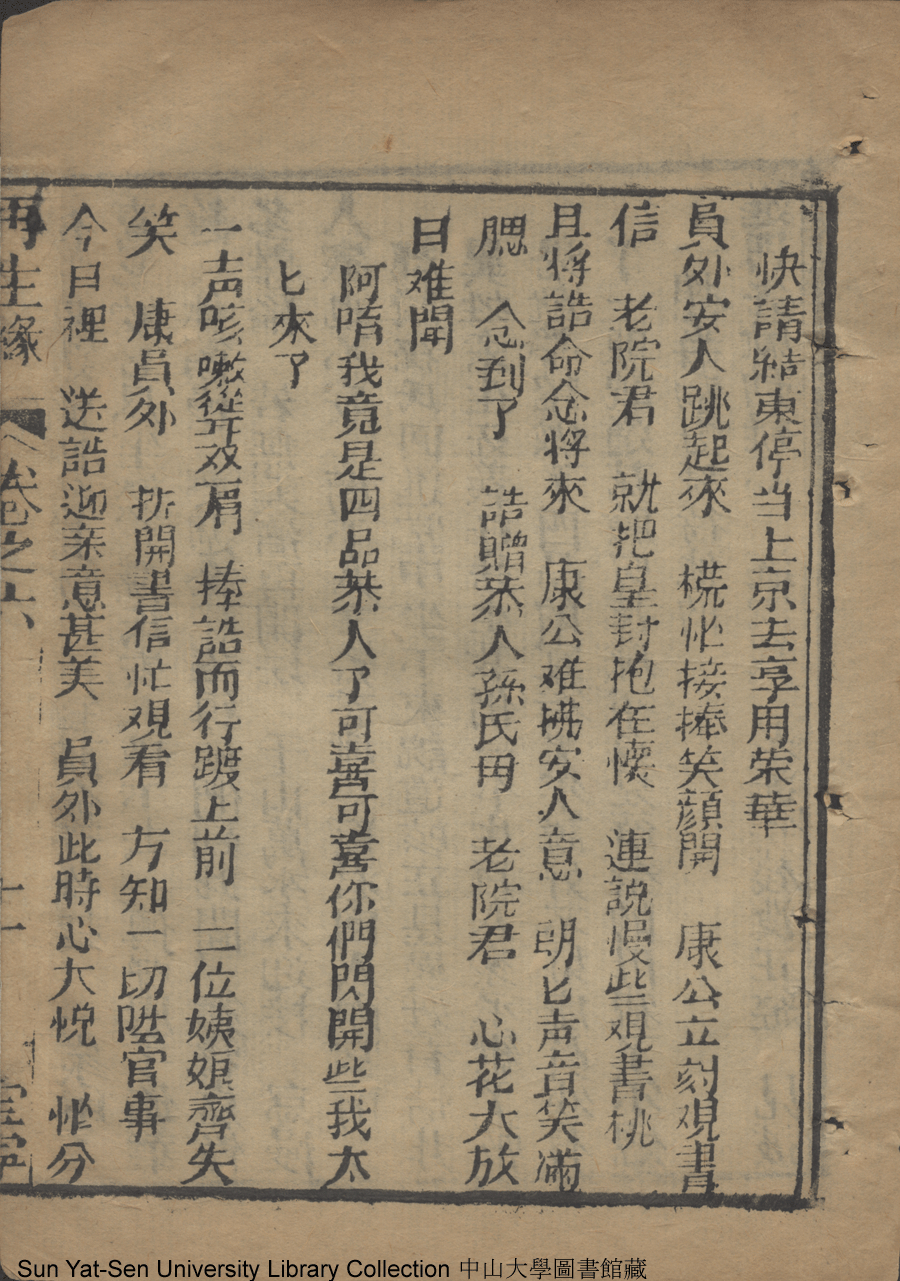 快請結束停当上京去享用荣華
員外安人跳起來　慌忙接捧笑顔開　康公立刻观書
信　老院君　就把皇封抱在懷　連説慢些观書桃
且将誥命念将來　康公难拂安人意　朗匕声音笑滿
腮　念到了　誥贈恭人孫氏毋　老院君　心花大放
日难聞
阿唷我竟是四品恭人了可喜可喜你們閃開些我太
匕來了
一声咳嗽從开双肩　捧誥而行踱上前　二位姨娘齊失
笑　康員外　拆開書信忙观看　方知一切陞官事
今日裡　送誥迎亲意甚美　員外此時心大悦　忙分
再生緣　卷之六　十一
Sun Yat-Sen University Library Collection 中山大學圖書館藏